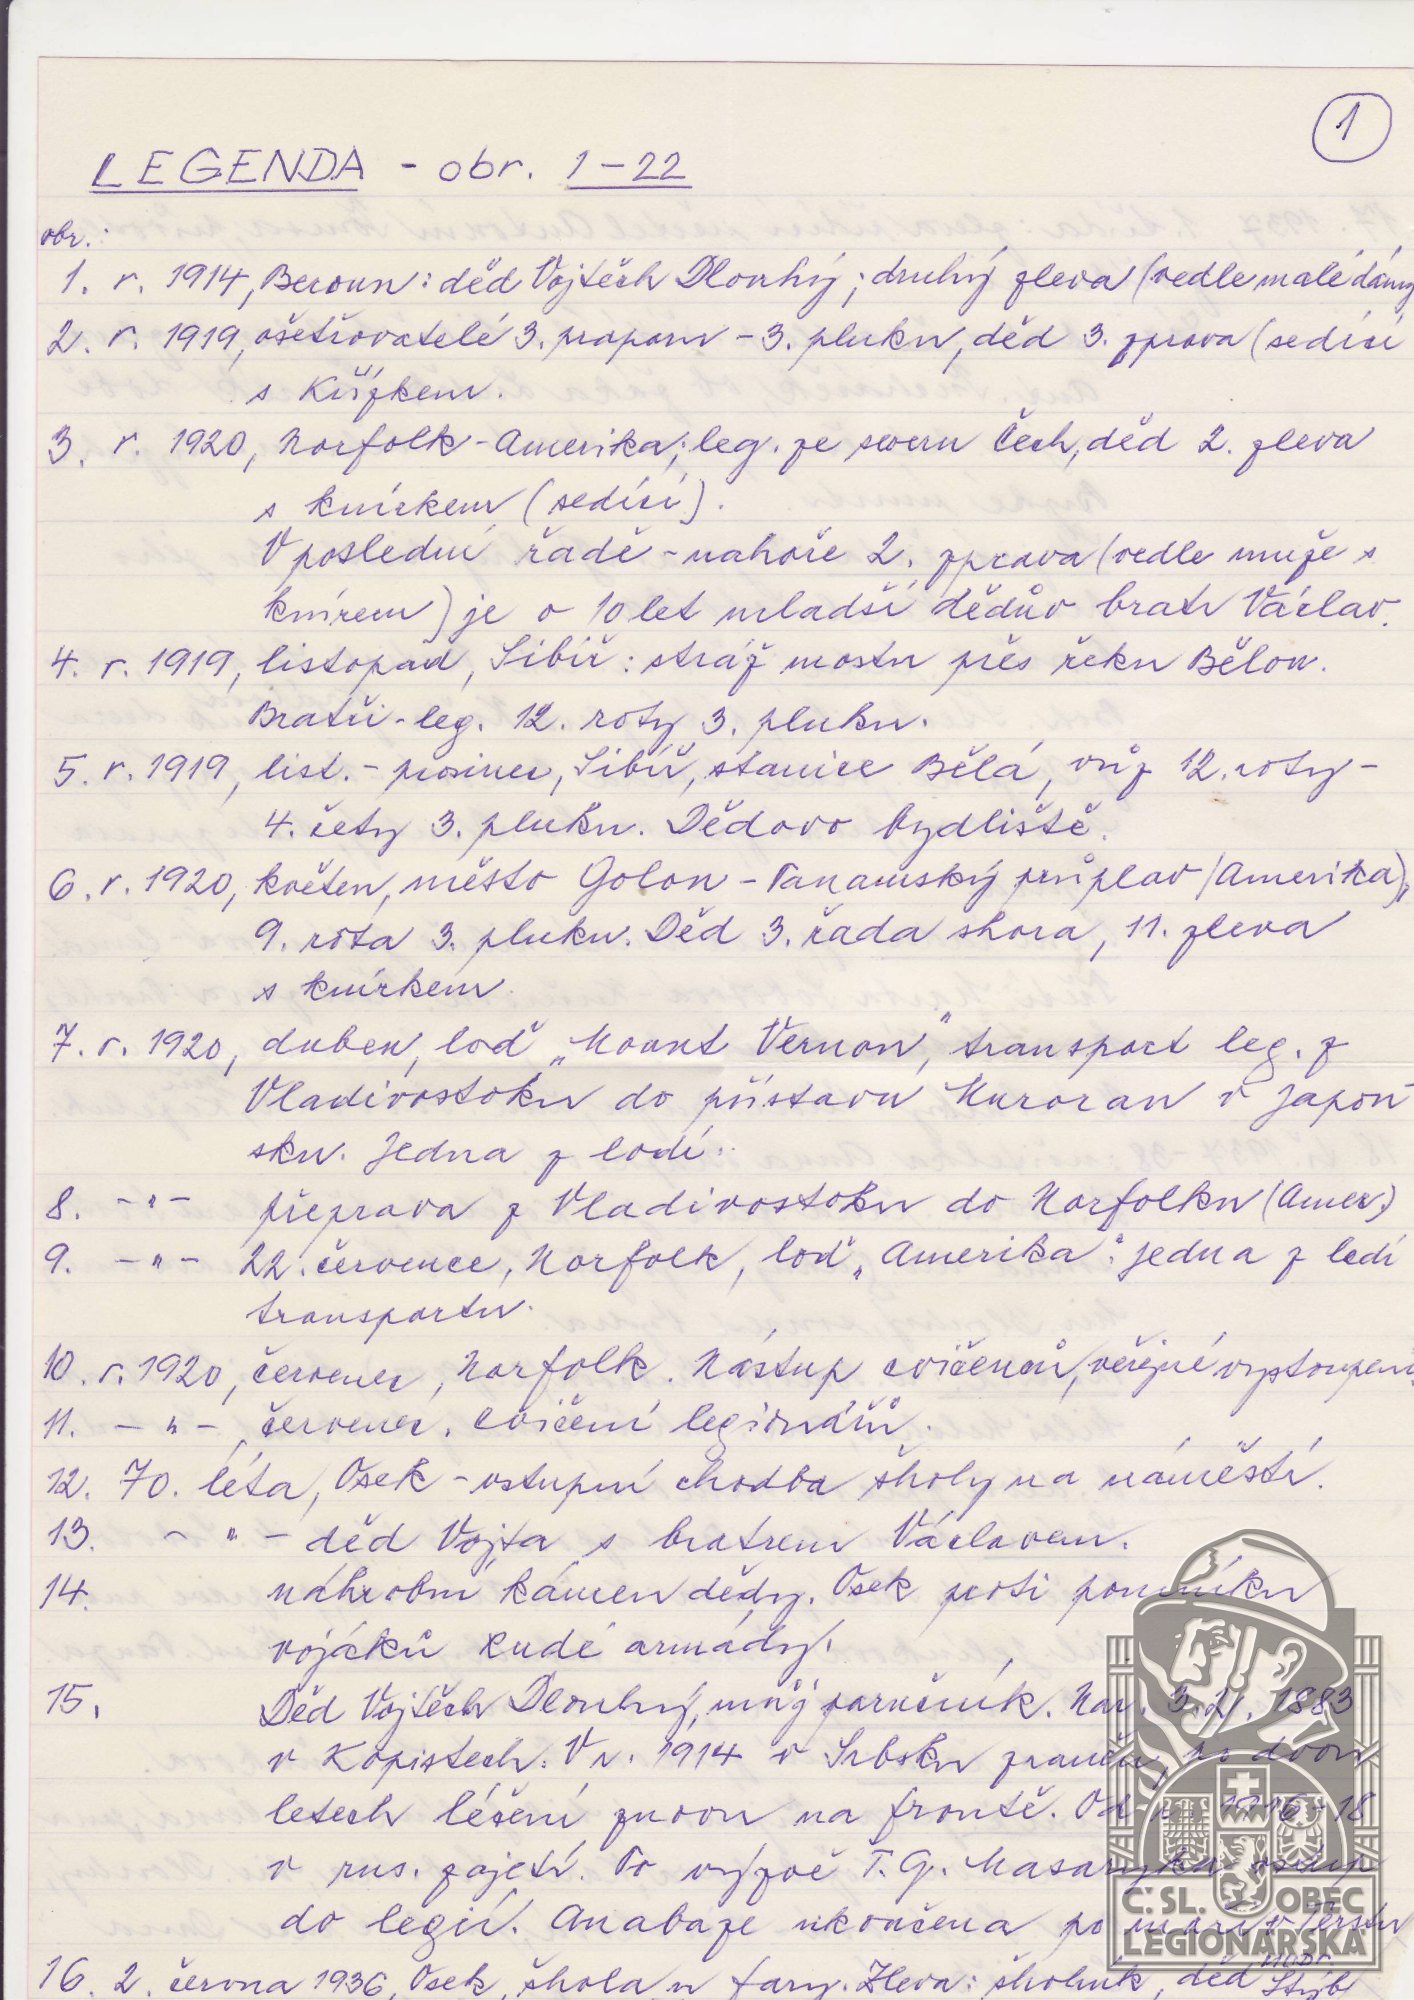 1
LEGENDA - obr. 1-22
obr.:
1. r. 1914, Beroun: děd Vojtěch Dlouhý; druhý zleva (vedle malé dámy
2. r. 1919, ošetřovatelé 3. praporu - 3. pluku, děd 3. zprava (sedící
s křížkem.
3. r. 1920, Norfolk - Amerika; leg. ze severu Čech, děd 2. zleva
s knírkem (sedící).
V poslední řadě - nahoře 2. zprava (vedle muže s
knírem) je o 10 let mladší dědův bratr Václav.
4. r. 1919, listopad, Sibiř: stráž mostu přes řeku Bělou.
Bratři - leg. 12. roty 3. pluku.
5. r. 1919, list. - prosinec, Sibiř, stanice Bělá, vůz 12. roty -
4. čety 3. pluku. Dědovo bydliště.
6. r. 1920, květen, město Golon - Panamský průplav (Amerika),
9. rota 3. pluku. Děd 3. řada shora, 11. zleva
s knírkem.
7. r. 1920, duben, loď „Mount Vernon", transport leg. z
Vladivostoku do přístavu Muroran v Japon-
sku. Jedna z lodí.
8. -"- přeprava z Vladivostoku do Norfolku (Amer.)
9. -"- 22. července, Norfolk, loď „Amerika": jedna z lodí
transportu.
10. r. 1920, červenec, Norfolk. Nástup cvičenců, veřejné vystoupení.
11. -"-, červenec. Cvičení legionářů.
12. 70. léta, Osek - vstupní chodba školy na náměstí.
13. -"- děd Vojta s bratrem Václavem.
14. náhrobní kámen dědy. Osek proti pomníku
vojáků Rudé armády.
15. Děd Vojtěch Dlouhý, můj poručník. Nar. 1883
v Kopistech. V r. 1914 v Srbsku zraněn, po dvou
letech léčení znovu na frontě. Od r. 1916-18
v rus. zajetí. Po výzvě T. G. Masaryka vstup
do legií. Anabaze ukončena po moři v Terstu
16. 2. června 1936, Osek, škola u fary. Zleva: školník, děd, Stýbl
ČSL. OBEC
LEGIONÁŘSKÁ